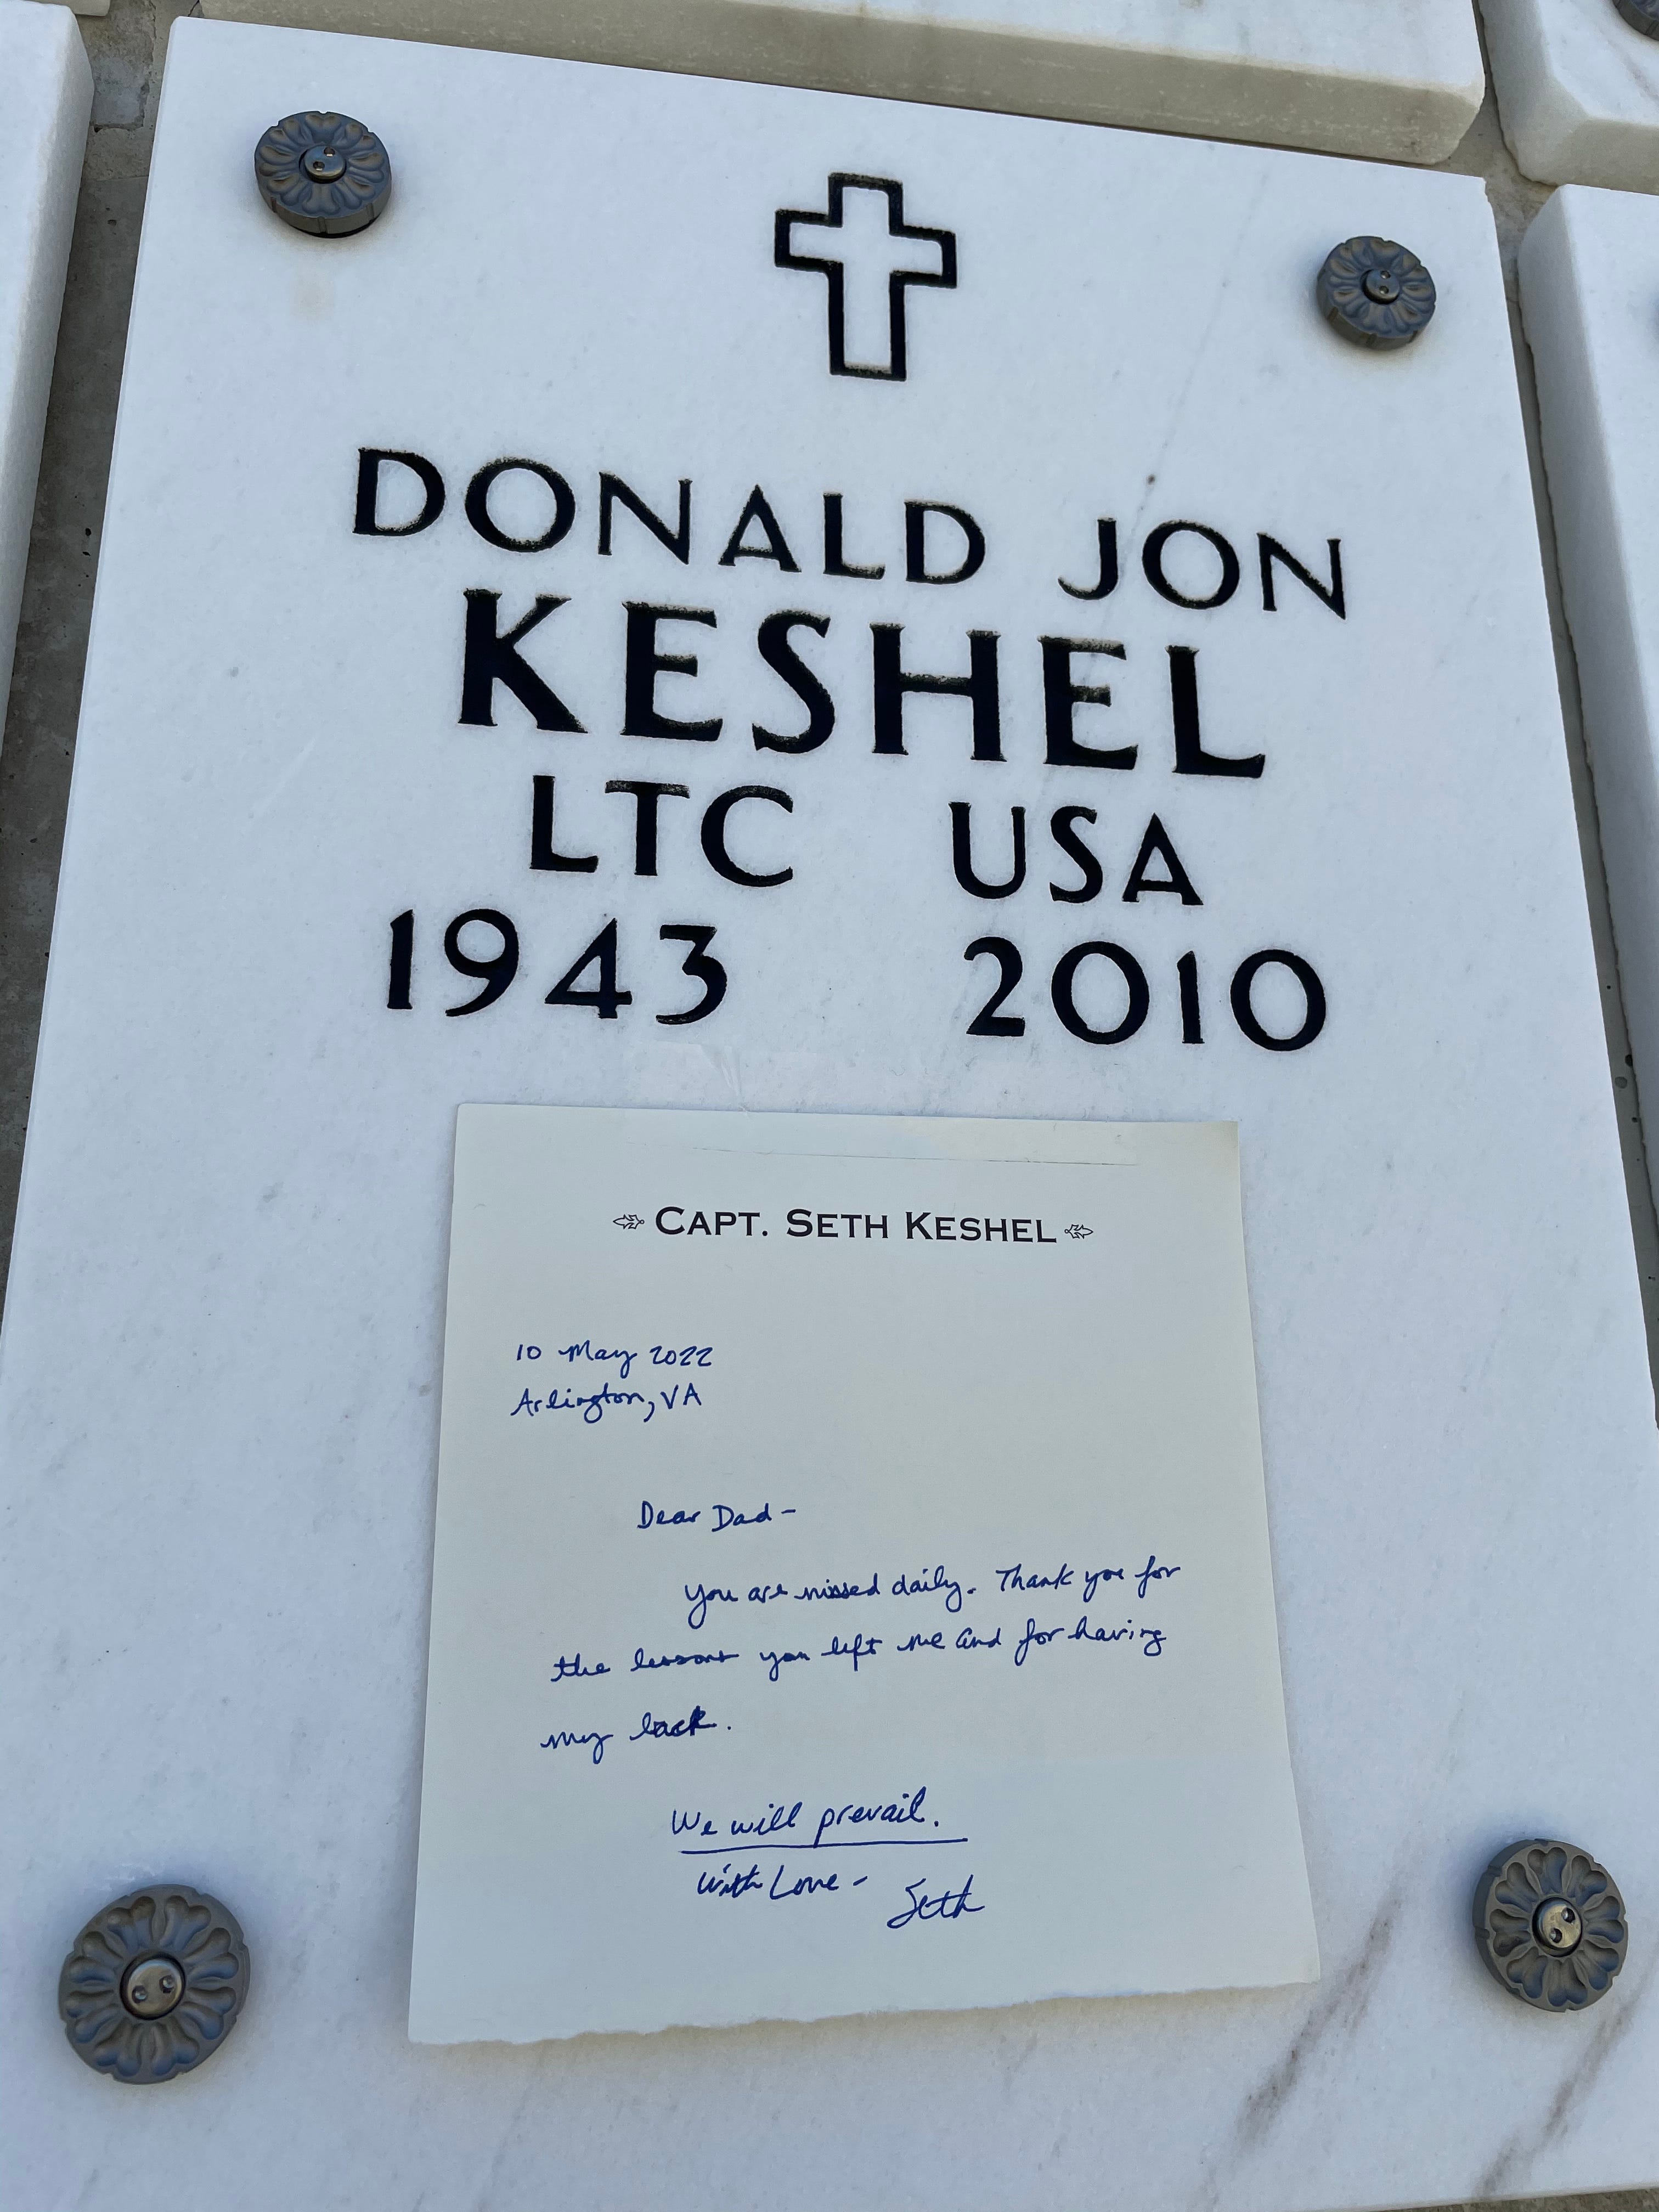 DONALD JON
KESHEL
LTC USA
1943 2010
CAPT. SETH KESHEL
10 May 2022
Arlington, VA
Dear Dad-
You are missed daily. Thank you for
the lessons you left me and for having
my back.
We will prevail.
With Love-
Seth